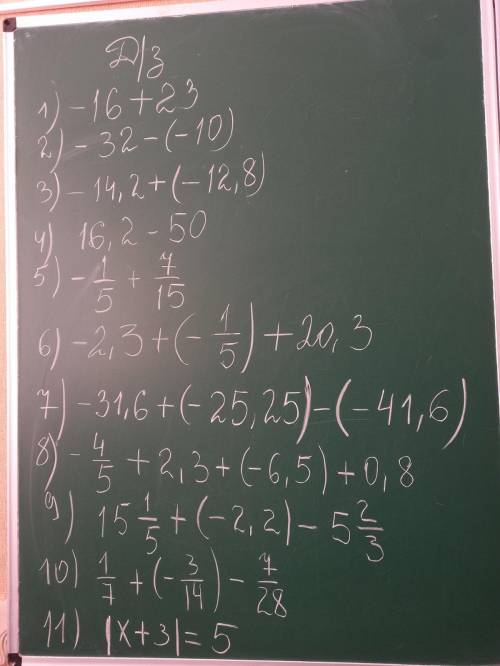 Д/з
1) -16+23
2) -32-(-10)
3) -14,2+(-12,8)
4) 16,2-50
5) -1/5 + 7/15
6) -2,3+(-1/5)+20,3
7) -31,6+(-25,25)-(-41,6)
8) -4/5+2,3+(-6,5)+0,8
9) 15 1/5+(-2,2)-5 2/3
10) 1/7+(-3/14)-7/28
11) |x+3|=5